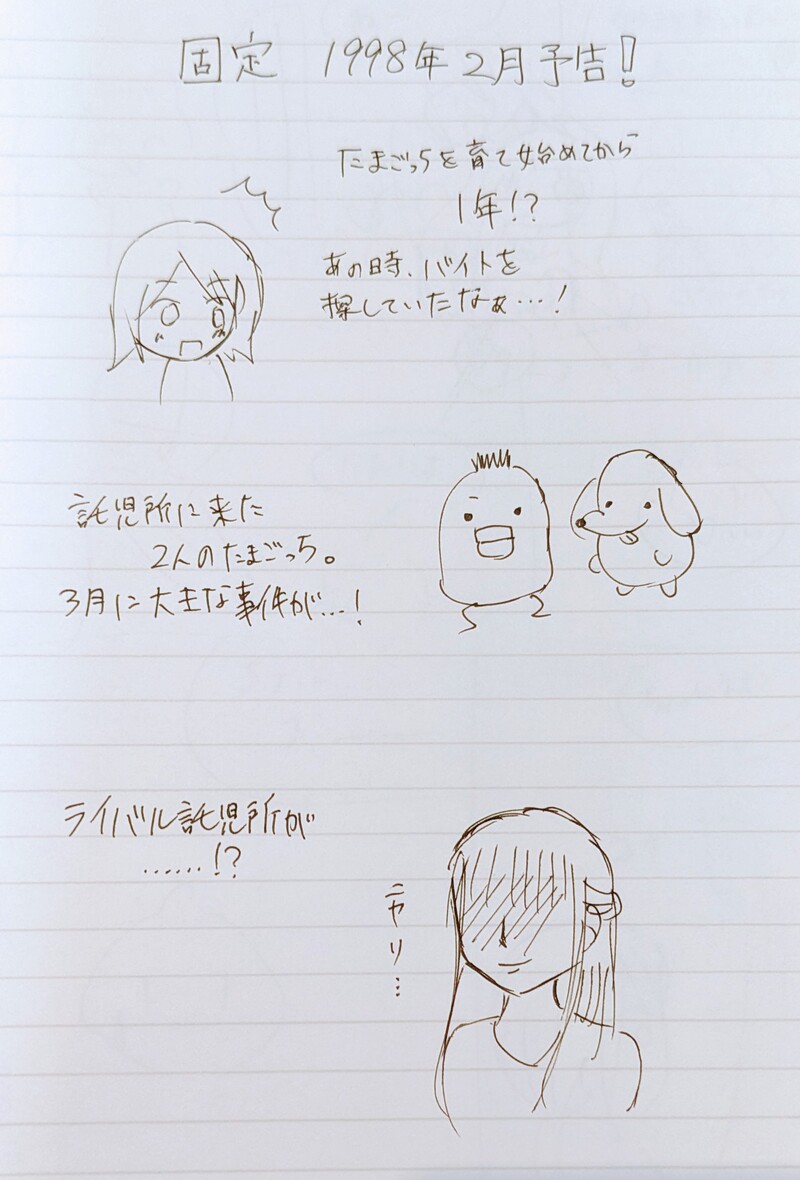 固定 1998年2月予告!
たまごっちを育て始めてから
1年!?
あの時、バイトを
探していたなぁ…!
託児所に来た
2人のたまごっち。
3月に大きな事件が…!
ライバル託児所が
……!?
ニヤリ…